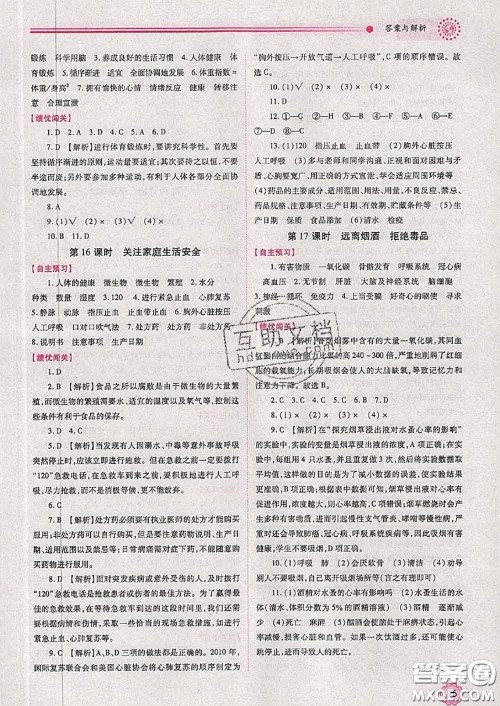 答案与解析
锻炼 科学用脑 3. 养成良好的生活习惯 4. 人体健康 体
育锻炼 5. 循序渐进 全面协调地发展 6. 体重指数=
体重/身高² 7. 拥有愉快的心情 情绪反应 健康 转移注
意 合理宣泄
【绩优闯关】
1. D 2. A 3. D 4. C 5. A 6. B
7. D 【解析】进行体育锻炼时,要讲究科学性。首先要
坚持循序渐进的原则,运动要适度;其次要持之以恒,不要
半途而废。另外要参加多种运动,有利于人体各部分全面协
调地发展。
8. A
9. (1)× (2)√ (3)× (4)√
10. B 11. D
第 16 课时 关注家庭生活安全
【自主预习】
1. 人体的健康 微生物 微生物 繁殖 2. 水分
种类 数量 湿度 3. 120 进行力所能及的急救 心肺复苏
5. 静脉 动脉 指压止血 止血带止血 6. 胸外心脏按压
人工呼吸 口对口吹气法 7. 处方药 非处方药 非处方药
8. 说明书 注意事项 生产日期
【绩优闯关】
1. D
2. B 【解析】食品之所以腐败是由于微生物的大量繁
殖,而微生物的繁殖需要水分、适宜的温度以及氧气等,控制
这些条件有利于食品的保存。
3. D
4. A 【解析】当发现有人因溺水、中毒等意外事故呼吸
突然停止时,应该立即进行施救。但在急救前一定要拨打
“120”急救电话,再采取救护措施,不要盲目地进行人工呼
吸,尽快争取医生的救治。
5. B
6. B 【解析】处方药必须要有执业医师的处方才能购买
服用;非处方药可以自行购买。服药前要注意药物的有效
期、生产日期、适用范围以及禁忌等;日常病痛需对症下药,
不可自行乱服药。
7. C
8. B 【解析】面对突发疾病或意外受伤的人,及时拨打
“120”急救电话是抢救患者或伤员的最好措施。但是为了赢
得最佳急救时间,在等待急救车到达的这段时间,可以先要
根据病情和伤情,采取一些急救措施,如止血包扎、人工呼
吸、心肺复苏等。
9. C 【解析】A、B、D 项的做法都是正确的。2010 年,
国际复苏联合会和美国心脏协会将心肺复苏的顺序制定为
“胸外按压→开放气道→人工呼吸”,C 项的顺序错误。故
选 C。
10. (1)√ (2)× (3)√ (4)×
11. D
12. ①—E ②—D ③—B ④—C ⑤—A
13. (1)120 指压止血 止血带 (2)胸外心脏按压
人工呼吸
14. (1)多与老师和同学沟通交流,正视和面对矛盾,
心胸要宽广,用平和的心态对待矛盾。 (2)积极参加体育
活动,正确的体育锻炼可以促进身心发展。 (3)药品的主
要成分、适用范围、用法、用量、不良反应、禁忌、
规格、注意事项、生产日期、有效期、批准文号等 (4)生产
日期、贮藏以及保质期 (5)食品添加剂 (6)清水 检疫
第 17 课时 远离烟酒 拒绝毒品
【自主预习】
1. 有害物质 一氧化碳 骨骼发育 呼吸系统 冠心病
高血压 2. 肝脏 胃肠 大脑及神经系统 脑细胞
3. 提神 三 兴奋作用 4. 染上毒瘾 好奇心的驱使 寻求
刺激
【绩优闯关】
1. D 2. D 3. B 4. C 5. D
6. B 【解析】香烟烟雾中含有的大量一氧化碳,其同血
红蛋白的结合能力比氧的高 240~300 倍,严重地削弱了红
细胞的载氧能力;长期吸烟会使人的大脑缺氧,导致记忆力
减退。
7. D
8. (1)× (2)√ (3)× (4)×
9. C 【解析】在“探究烟草浸出液对水蚤心率的影响”
中,实验的变量为烟草浸出液的浓度,A 项正确;在实验中,
每组分别用 4 只水蚤,并测出它们的心率,然后将实验数据
取平均值,这样做的目的是为了减小数据的误差,使实验结
果更准确,B 项正确;根据表中数据可知,烟草浸出液对水蚤
的心率影响很大,不同浓度的烟草浸出液对水蚤心率的影响
不同,C 项错误;烟草燃烧时,烟雾中的有害物质进入人体
后,会引起慢性支气管炎,哮喘等慢性病,严重者可导致肺
癌、冠心病等呼吸系统,心血管系统疾病等,因此吸烟有害
健康,青少年不要吸烟,D 项正确。
10. (1)呼吸 肺 (2)会厌软骨 (3)清洁 (4)劝
导吸烟者不要吸烟,自己离开吸烟场所。
(言之有理即可)
11. (1)酒精对水蚤的心率有影响吗 (2)水蚤生活的
清水(体积分数为 5%的酒精溶液) (3)酒精 逐渐 减少
(4)死亡 兴奋 麻醉 (5)酗酒会使人的神经系统受到麻
醉,损害人的心脏和血管。如果一次饮酒过多,还可能使心
脏停止,进而导致人的死亡。
互助文档
答案圈
MXQE.COM
5